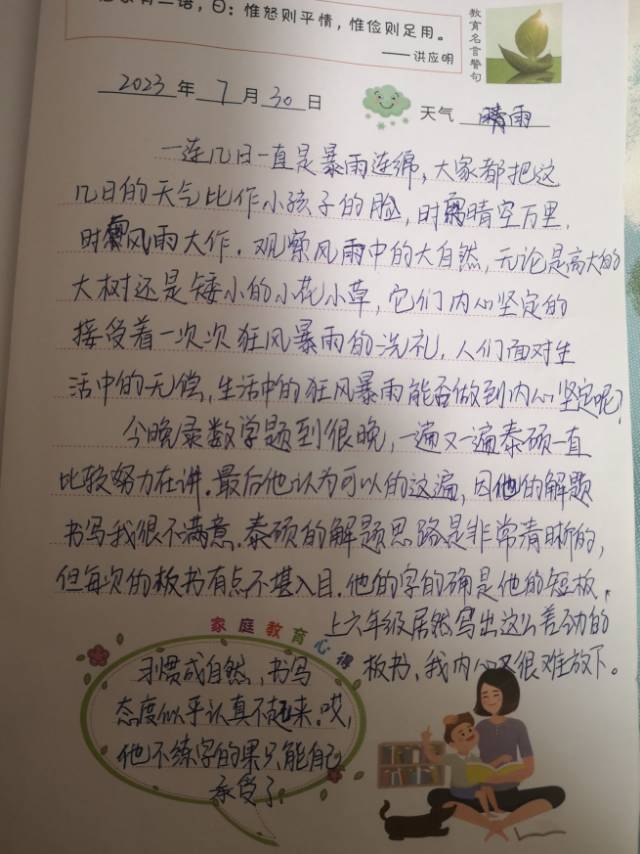 二语，曰：惟恕则平情，惟俭则足用。
——洪应明
教育名言警句
2023年7月30日
天气 晴雨
一连几日一直是暴雨连绵，大家都把这
几日的天气比作小孩子的脸，时而晴空万里，
时而风雨大作。观察风雨中的大自然，无论是高大的
大树还是矮小的小花小草，它们内心坚定的
接受着一次次狂风暴雨的洗礼，人们面对生
活中的无偿，生活中的狂风暴雨能否做到内心坚定呢？
今晚录数学题到很晚，一遍又一遍泰硕一直
比较努力在讲。最后他认为可以的这遍，因他的解题
书写我很不满意。泰硕的解题思路是非常清晰的，
但每次的板书有点不堪入目。他的字的确是他的短板，
上六年级居然写出这么差劲的
板书，我内心又很难放下。
家庭教育心得
习惯成自然，书写
态度似乎认真不起来。哎，
他不练字的果只能自己
承受了。